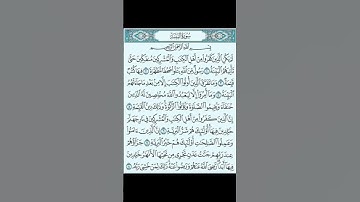 سُورَةُ البَيِّنَةِ
بِسْمِ ٱللَّهِ ٱلرَّحْمَٰنِ ٱلرَّحِيمِ
لَمْ يَكُنِ ٱلَّذِينَ كَفَرُوا۟ مِنْ أَهْلِ ٱلْكِتَٰبِ وَٱلْمُشْرِكِينَ مُنفَكِّينَ حَتَّىٰ
تَأْتِيَهُمُ ٱلْبَيِّنَةُ ١ رَسُولٌ مِّنَ ٱللَّهِ يَتْلُوا۟ صُحُفًا مُّطَهَّرَةً ٢ فِيهَا كُتُبٌ
قَيِّمَةٌ ٣ وَمَا تَفَرَّقَ ٱلَّذِينَ أُوتُوا۟ ٱلْكِتَٰبَ إِلَّا مِنۢ بَعْدِ مَا جَآءَتْهُمُ
ٱلْبَيِّنَةُ ٤ وَمَآ أُمِرُوٓا۟ إِلَّا لِيَعْبُدُوا۟ ٱللَّهَ مُخْلِصِينَ لَهُ ٱلدِّينَ
حُنَفَآءَ وَيُقِيمُوا۟ ٱلصَّلَوٰةَ وَيُؤْتُوا۟ ٱلزَّكَوٰةَ وَذَٰلِكَ دِينُ ٱلْقَيِّمَةِ ٥
إِنَّ ٱلَّذِينَ كَفَرُوا۟ مِنْ أَهْلِ ٱلْكِتَٰبِ وَٱلْمُشْرِكِينَ فِى نَارِ جَهَنَّمَ
خَٰلِدِينَ فِيهَآ أُو۟لَٰٓئِكَ هُمْ شَرُّ ٱلْبَرِيَّةِ ٦ إِنَّ ٱلَّذِينَ ءَامَنُوا۟
وَعَمِلُوا۟ ٱلصَّٰلِحَٰتِ أُو۟لَٰٓئِكَ هُمْ خَيْرُ ٱلْبَرِيَّةِ ٧ جَزَآؤُهُمْ
عِندَ رَبِّهِمْ جَنَّٰتُ عَدْنٍ تَجْرِى مِن تَحْتِهَا ٱلْأَنْهَٰرُ خَٰلِدِينَ
فِيهَآ أَبَدًا رَّضِىَ ٱللَّهُ عَنْهُمْ وَرَضُوا۟ عَنْهُ ذَٰلِكَ لِمَنْ خَشِىَ رَبَّهُۥ ٨